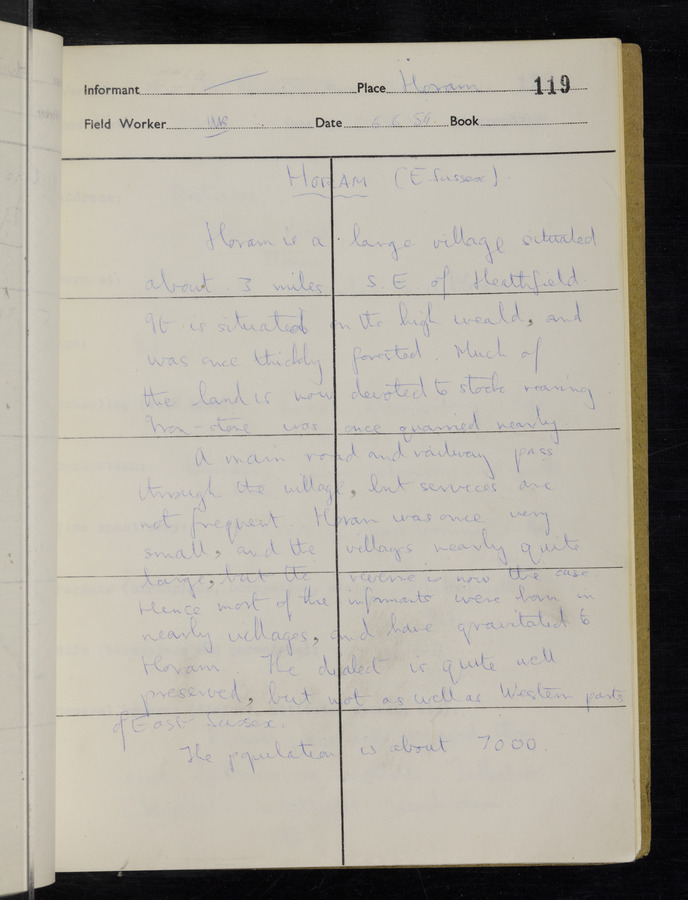 Informant Place Horam 119
Field Worker Date 6.6.59. Book
HORAM (E Sussex).
Horam is a large village situated
about 3 miles S.E. of Heathfield.
It is situated on the high weald, and
was once thickly forested. Much of
the land is now devoted to stock rearing
Iron-stone was once quarried nearby
A main road and railway pass
through the village, but services are
not frequent. Horam was once very
small, and the villages nearby quite
large, but the reverse is now the case.
Hence most of the informants were born in
nearby villages, and have gravitated to
Horam. The dialect is quite well
preserved, but not as well as Western parts
of East Sussex.
The population is about 7000.